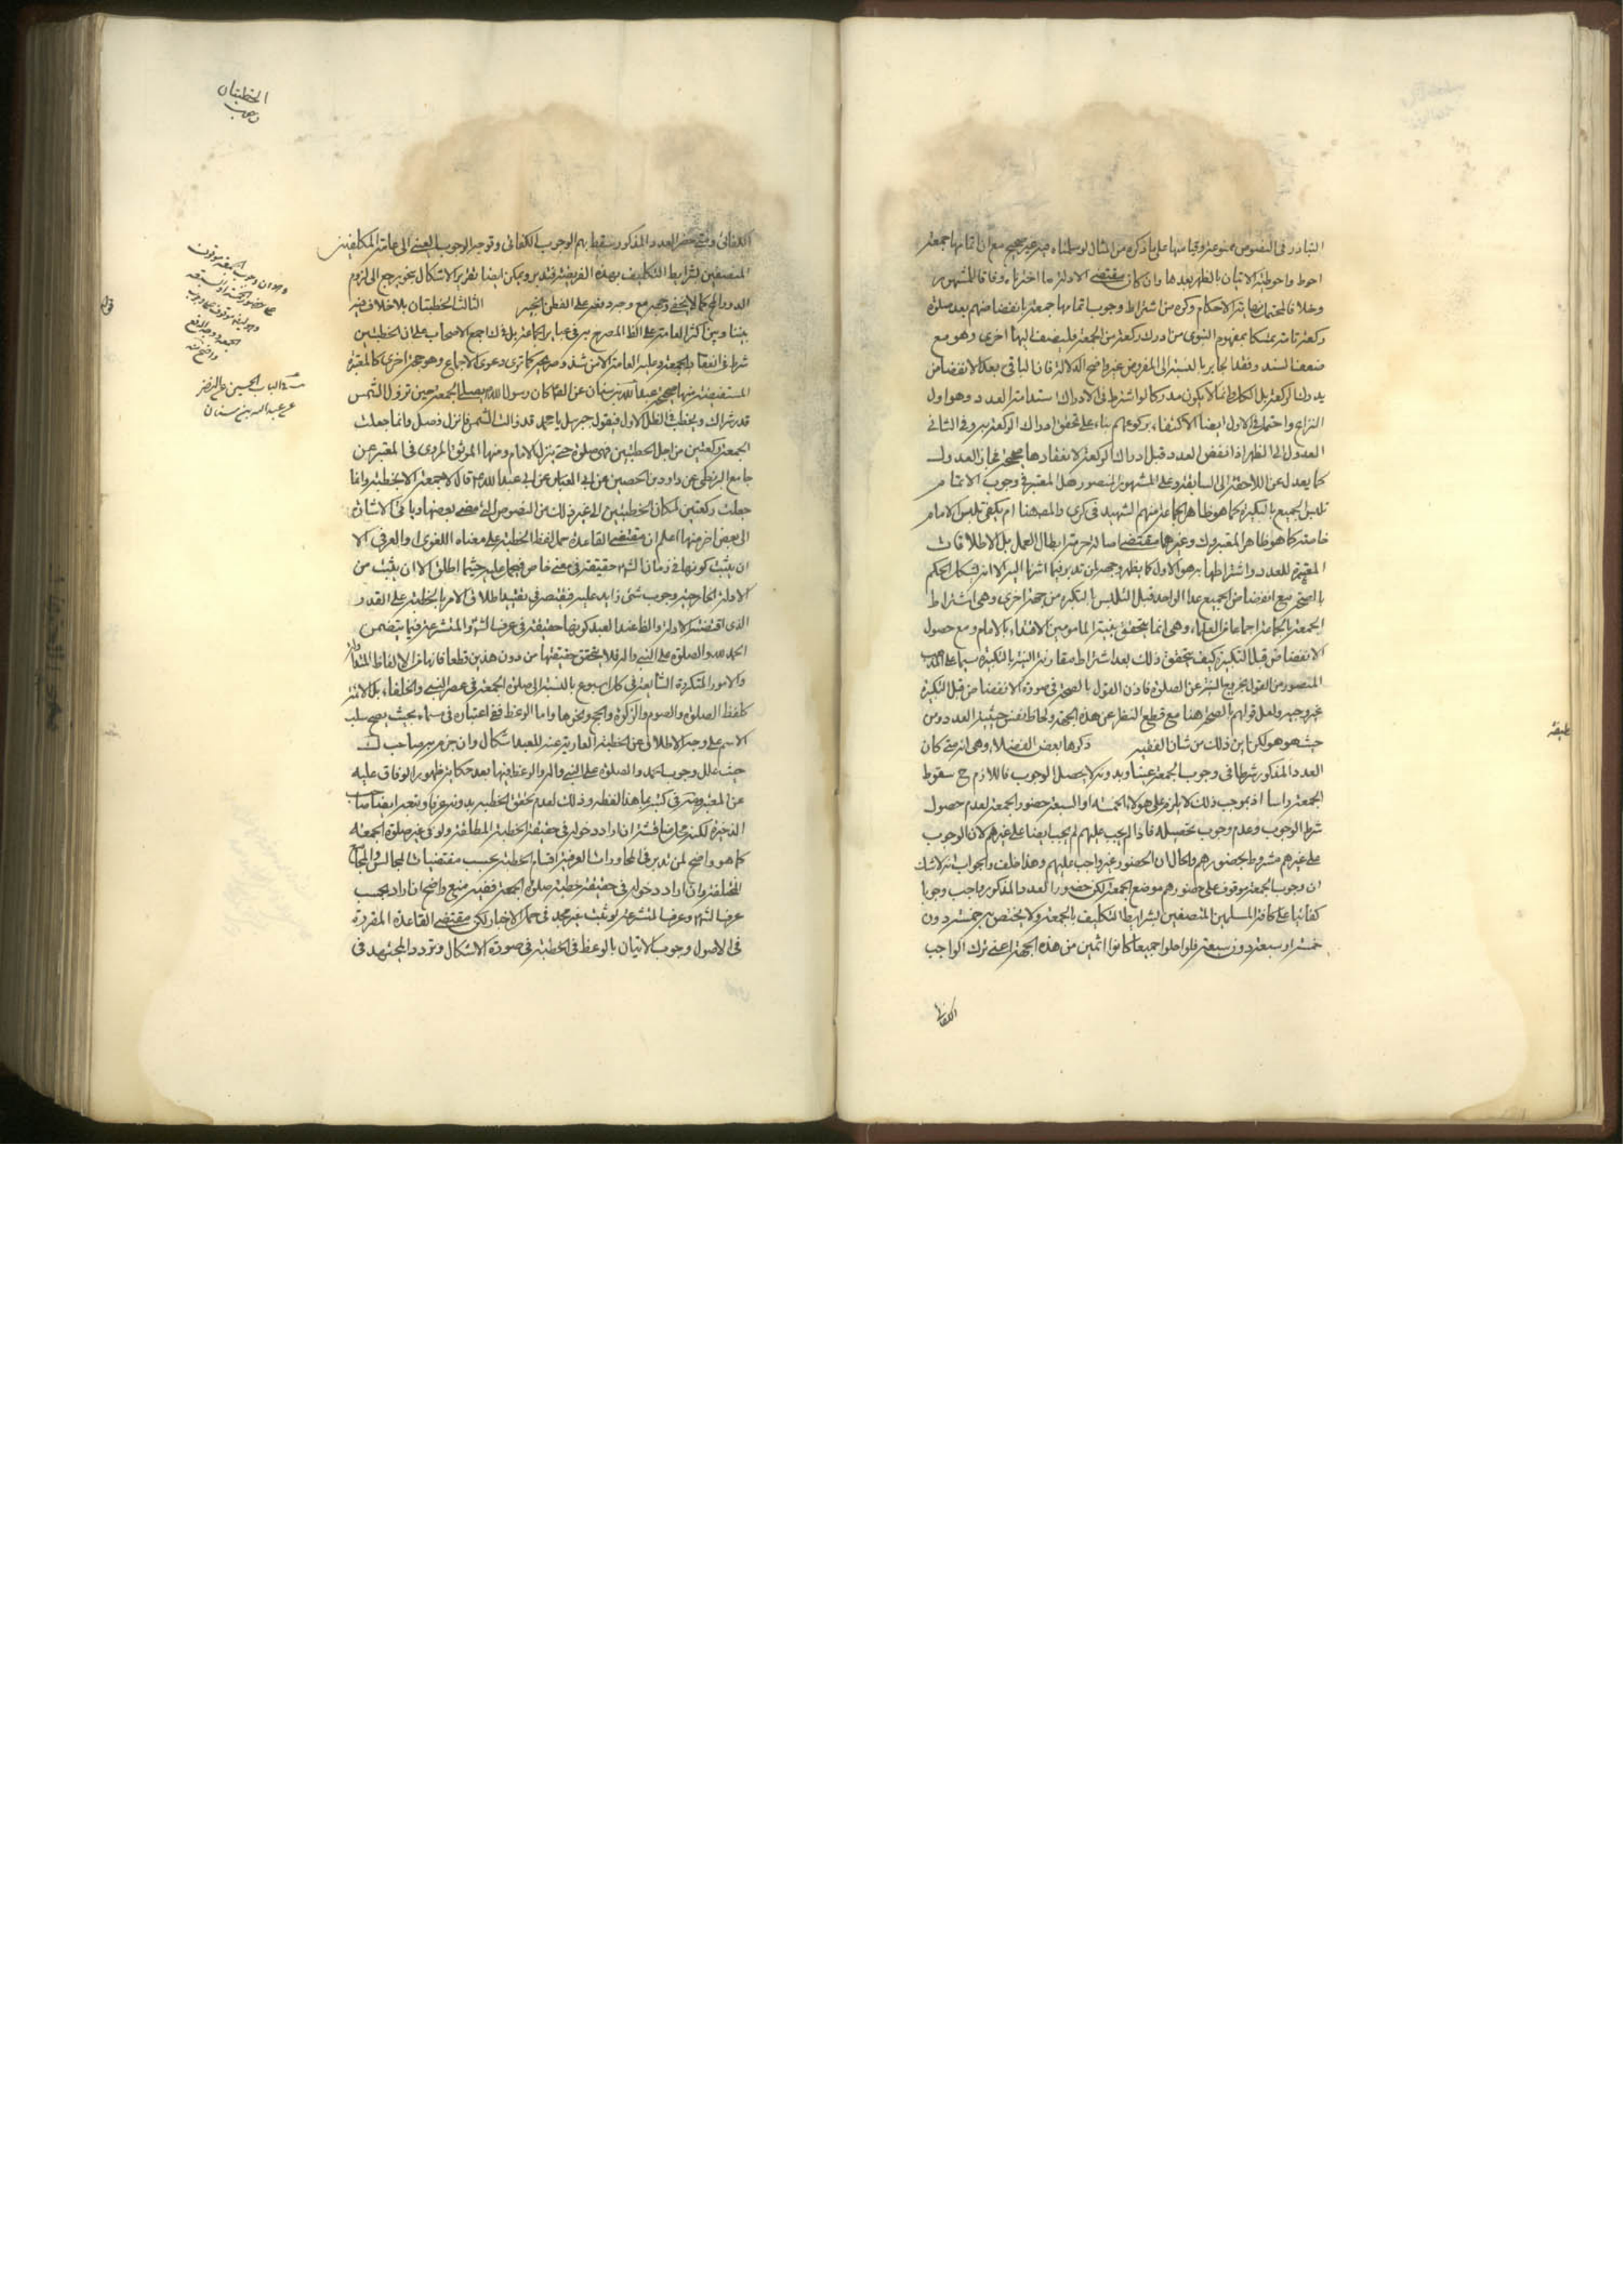 التبادر فى النصوص ممنوعة وقياسها على ما ذكره من المثال لو سلمناه فيه غير صحيح مع ان اتمامها جمعة
احوط واحوط منه الاتيان بالظهر بعدها وان كان مقتضى الادلة ما اخترناه وفاقا للمشهور
وخلافا للمحتمل نهاية الاحكام وكره من اشتراط وجوب اتمامها جمعة بانفضاضهم بعد صلوة
ركعة تامة تمسكا بمفهوم النبوى من ادرك ركعة من الجمعة فليضف اليها اخرى وهو مع
ضعف السند وفقد الجابر بالنسبة الى المفروض غير واضح الدلالة فان الباقى بعد الانفضاض
يدرك الركعة بل الكل وانما لا يكون مدركا لو اشترط فى الادراك استدامة العدد وهو اول
النزاع واحتمل فى الاول ايضا الاكتفاء بركوعهم بناء على تحقق ادراك الركعة به وفى الثانى
العدول الى الظهر اذا انفض العدد قبل ادراك الركعة لانعقادها صحيحة فجاز العدول
كما يعدل عن اللاحقة الى السابقة وعلى المشهور المنصور هل المعتبر فى وجوب الاتمام
تلبس الجميع بالتكبيرة كما هو ظاهر جماعة منهم الشهيد فى كرى والمص هنا ام يكفى تلبس الامام
خاصة كما هو ظاهر المعتبر وك وغيرهما مقتضى اصالة حرمة ابطال العمل بل الاطلاقات
المعتبرة للعدد واشتراطها به هو الاول كما يظهر وجهه لمن تدبر فيما اشرنا اليه الا انه يشكل الحكم
بالصحة مع انفضاض الجميع عدا الواحد قبل التلبس بالتكبيرة من جهة اخرى وهى اشتراط
الجمعة بالجماعة اجماعا من العلماء وهى انما يتحقق بنية المامومين الاقتداء بالامام ومع حصول
الانفضاض قبل التكبيرة كيف يتحقق ذلك بعد اشتراط مقارنة النية بالتكبيرة سيما على المذهب
المنصور من القول بخروج النية عن الصلوة فاذن القول بالصحة فى صورة الانفضاض قبل التكبيرة
غير وجيه ولعل قولهم بالصحة هنا مع قطع النظر عن هذه الجهة ولحاظ نفس حيثية العدد من
حيث هو هو لكن اين ذلك من شان الفقيه ذكرها بعض الفضلاء وهى انه متى كان
العدد المذكور شرطا فى وجوب الجمعة عينا وبدونه لا يحصل الوجوب فاللازم ح سقوط
الجمعة راسا اذ بموجب ذلك لا يلزم على هؤلاء الخمسة او السبعة حضور الجمعة لعدم حصول
شرط الوجوب وعدم وجوب تحصيله فاذا لم يجب عليهم لم يجب ايضا على غيرهم لان الوجوب
على غيرهم مشروط بحضورهم والحال ان الحضور غير واجب عليهم وهذا خلف والجواب انه لا شك
ان وجوب الجمعة موقوف على حضورهم موضع الجمعة لكن حضور العدد المذكور واجب وجوبا
كفائيا على كافة المسلمين المتصفين بشرايط التكليف بالجمعة ولا يختص به خمسة دون
خمسة او سبعة دون سبعة فلو اخلوا جميعا كانوا اثمين من هذه الجهة اعنى ترك الواجب
الكفائى
الخطبتان
الكفائى ومتى حضر العدد المذكور سقط بهم الوجوب الكفائى وتوجه الوجوب العينى الى عامة المكلفين
المتصفين بشرايط التكليف بهذه الفريضة فتدبر ويمكن ايضا تقرير الاشكال بنحو يرجع الى لزوم
الدور الحج كما لا يخفى وجهه مع وجه دفعه على الفطن الخبير الثالث الخطبتان بلا خلاف فيه
بيننا وبين اكثر العامة على الظ المصرح به فى عبائر الجماعة بل فى ك اجمع الاصحاب على ان الخطبتين
شرط فى انعقاد الجمعة وعليه العامة الا من شذ وصريحه كما ترى دعوى الاجماع وهو حجة اخرى كالمعتبرة
المستفيضة منها صحيح عبد الله بن سنان عن الصم كان رسول الله يصلى الجمعة حين تزول الشمس
قدر شراك ويخطب فى الظل الاول فيقول جبرئيل يا محمد قد زالت الشمس فانزل فصل وانما جعلت
الجمعة ركعتين من اجل الخطبتين فهى صلوة حتى ينزل الامام ومنها الموثق المروى فى المعتبر عن
جامع البزنطى عن داود بن الحصين عن ابى العباس عن ابى عبد الله قال لا جمعة الا بخطبة وانما
جعلت ركعتين لمكان الخطبتين الى غير ذلك من النصوص التى مضى بعضها وياتى الاشارة
الى بعض اخر منها اعلم ان مقتضى القاعدة حمل لفظ الخطبة على معناه اللغوى والعرفى الا
ان يثبت كونها فى زمان الش حقيقة فى معنى خاص فيحمل عليه حيثما اطلق الا ان يثبت من
الادلة الخارجية وجوب شئ زايد عليه فيقتصر فى تقييد اطلاق الامر بالخطبة على القدر
الذى اقتضته الادلة والظ عند العبد كونها حقيقة فى عرف الش والمتشرعة فيما يتضمن
الحمد لله والصلوة على النبى واله فلا يتحقق حقيقتها من دون هذين قطعا فانها من الالفاظ المتداولة
والامور المتكررة الشايعة فى كل اسبوع بالنسبة الى صلوة الجمعة فى عصر النبى والخلفاء بل الائمة
كلفظ الصلوة والصوم والزكوة والحج ونحوها واما الوعظ ففى اعتباره فى مسماه بحيث يصح سلب
الاسم على وجه الاطلاق عن الخطبة العارية عنه للعبد اشكال وان جزم به صاحب ك
حيث علل وجوب الحمد والصلوة على النبى واله والوعظ فيها بعد حكاية ظهور الوفاق عليه
عن المعتبر وعن فى كتبه بما هذا لفظه وذلك لعدم تحقق الخطبة بدونه عرفا وتبعه ايضا صاحب
الذخيرة لكنه محل مناقشة ان اراد دخوله فى حقيقة الخطبة المطلقة ولو فى غير صلوة الجمعة
كما هو واضح لمن تدبر فى المحاورات العرفية اقسام الخطبة بحسب مقتضيات المجالس والمجامع
المختلفة وان اراد دخوله فى حقيقة خطبة صلوة الجمعة ففيه منع واضح ان اراد بحسب
عرف الش وعرف المتشرعة لو ثبت غير مجد فى حمل الاخبار لكن مقتضى القاعدة المقررة
فى الاصول وجوب الاتيان بالوعظ فى الخطبة فى صورة الاشكال وتردد المجتهد فى
الحسين عن النضر
عن عبد الله بن سنان